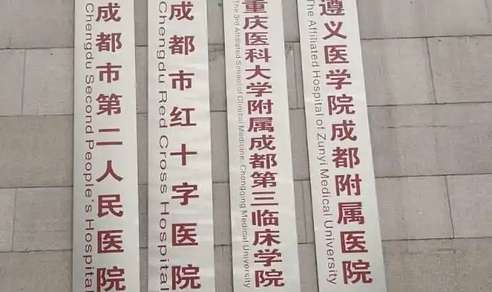 成都市第二人民医院
Chengdu Second People's Hospital
成都市红十字医院
Chengdu Red Cross Hospital
重庆医科大学附属成都第三临床学院
The 3rd Affiliated School of Clinical Medicine, Chongqing Medical University
遵义医学院成都附属医院
The Affiliated Hospital of Zunyi Medical University